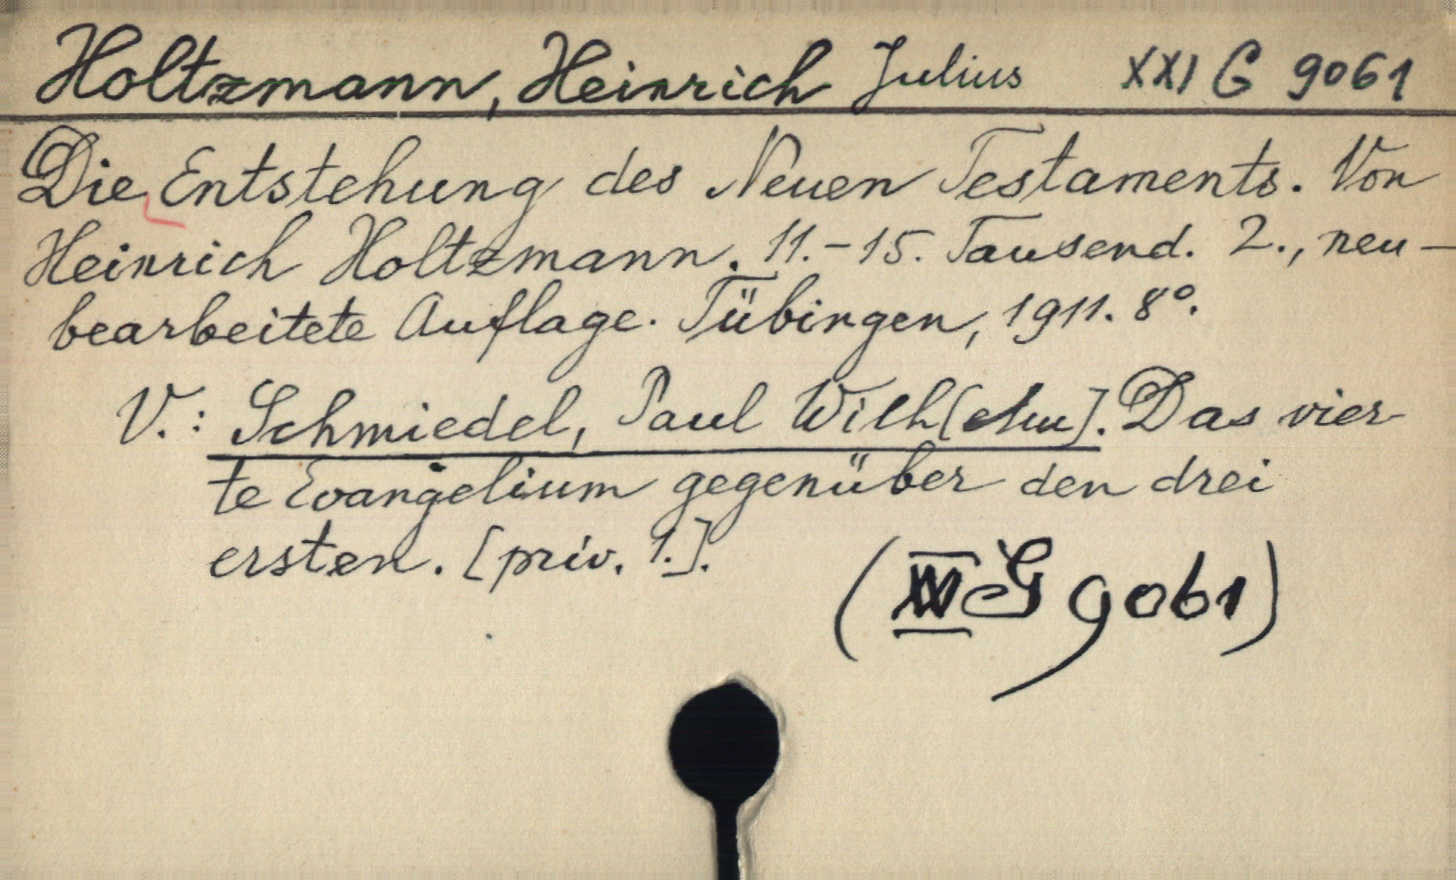 Holtzmann, Heinrich Julius XXI G 9061
Die Entstehung des Neuen Testaments. Von
Heinrich Holtzmann. 11.-15. Tausend. 2., neu-
bearbeitete Auflage. Tübingen, 1911. 8°.
V.: Schmiedel, Paul Wilh[elm]. Das vier-
te Evangelium gegenüber den drei
ersten. [priv. 1.].
G 9061)